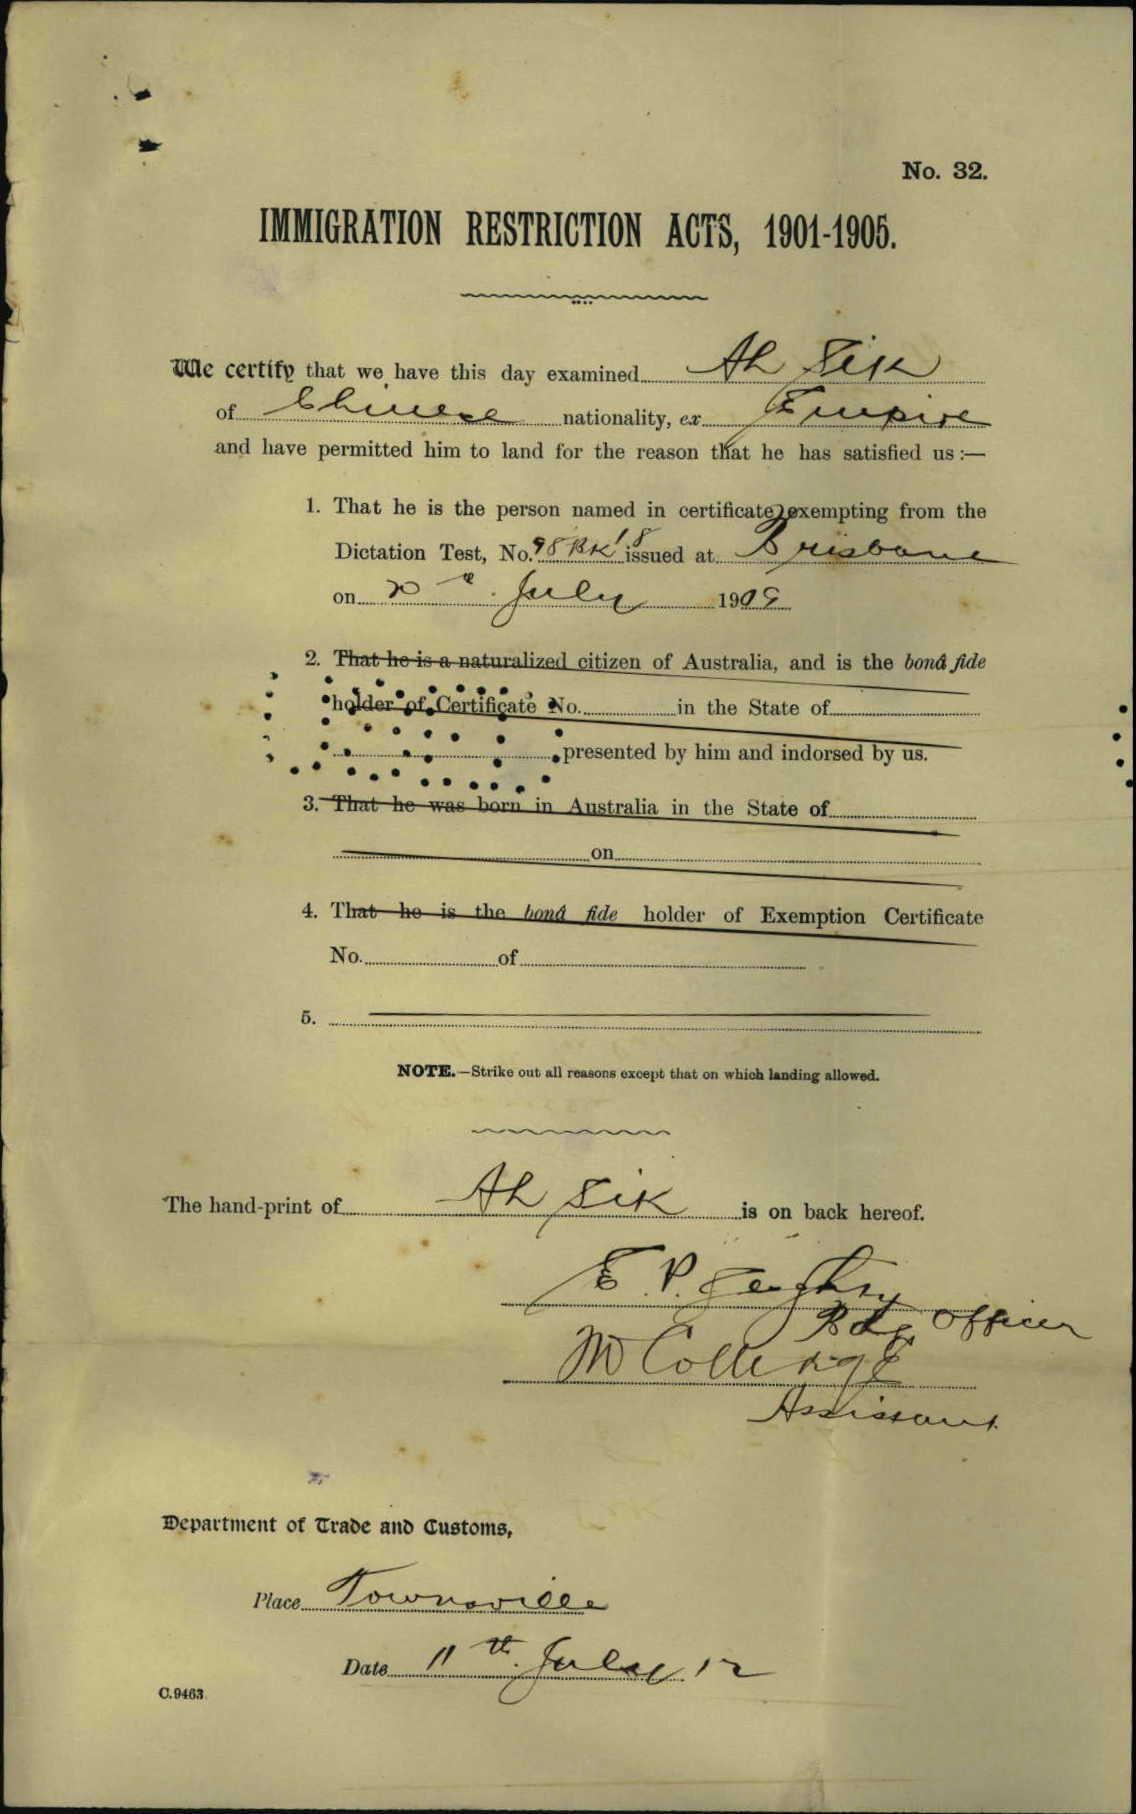 No. 32.
IMMIGRATION RESTRICTION ACTS, 1901-1905.
We certify that we have this day examined Ah Sik
of Chinese nationality, ex Empire
and have permitted him to land for the reason that he has satisfied us :—
1. That he is the person named in certificate exempting from the
Dictation Test, No. 98 BK 18 issued at Brisbane
on July 1909
2. That he is a naturalized citizen of Australia, and is the bonâ fide
holder of Certificate No. in the State of
presented by him and indorsed by us.
3. That he was born in Australia in the State of
on
4. That he is the bonâ fide holder of Exemption Certificate
No. of
5.
NOTE.—Strike out all reasons except that on which landing allowed.
The hand-print of Ah Sik is on back hereof.
E. P.
Bdg Officer
Assistant
Department of Trade and Customs,
Place Townsville
Date 11th July 12
C.9463